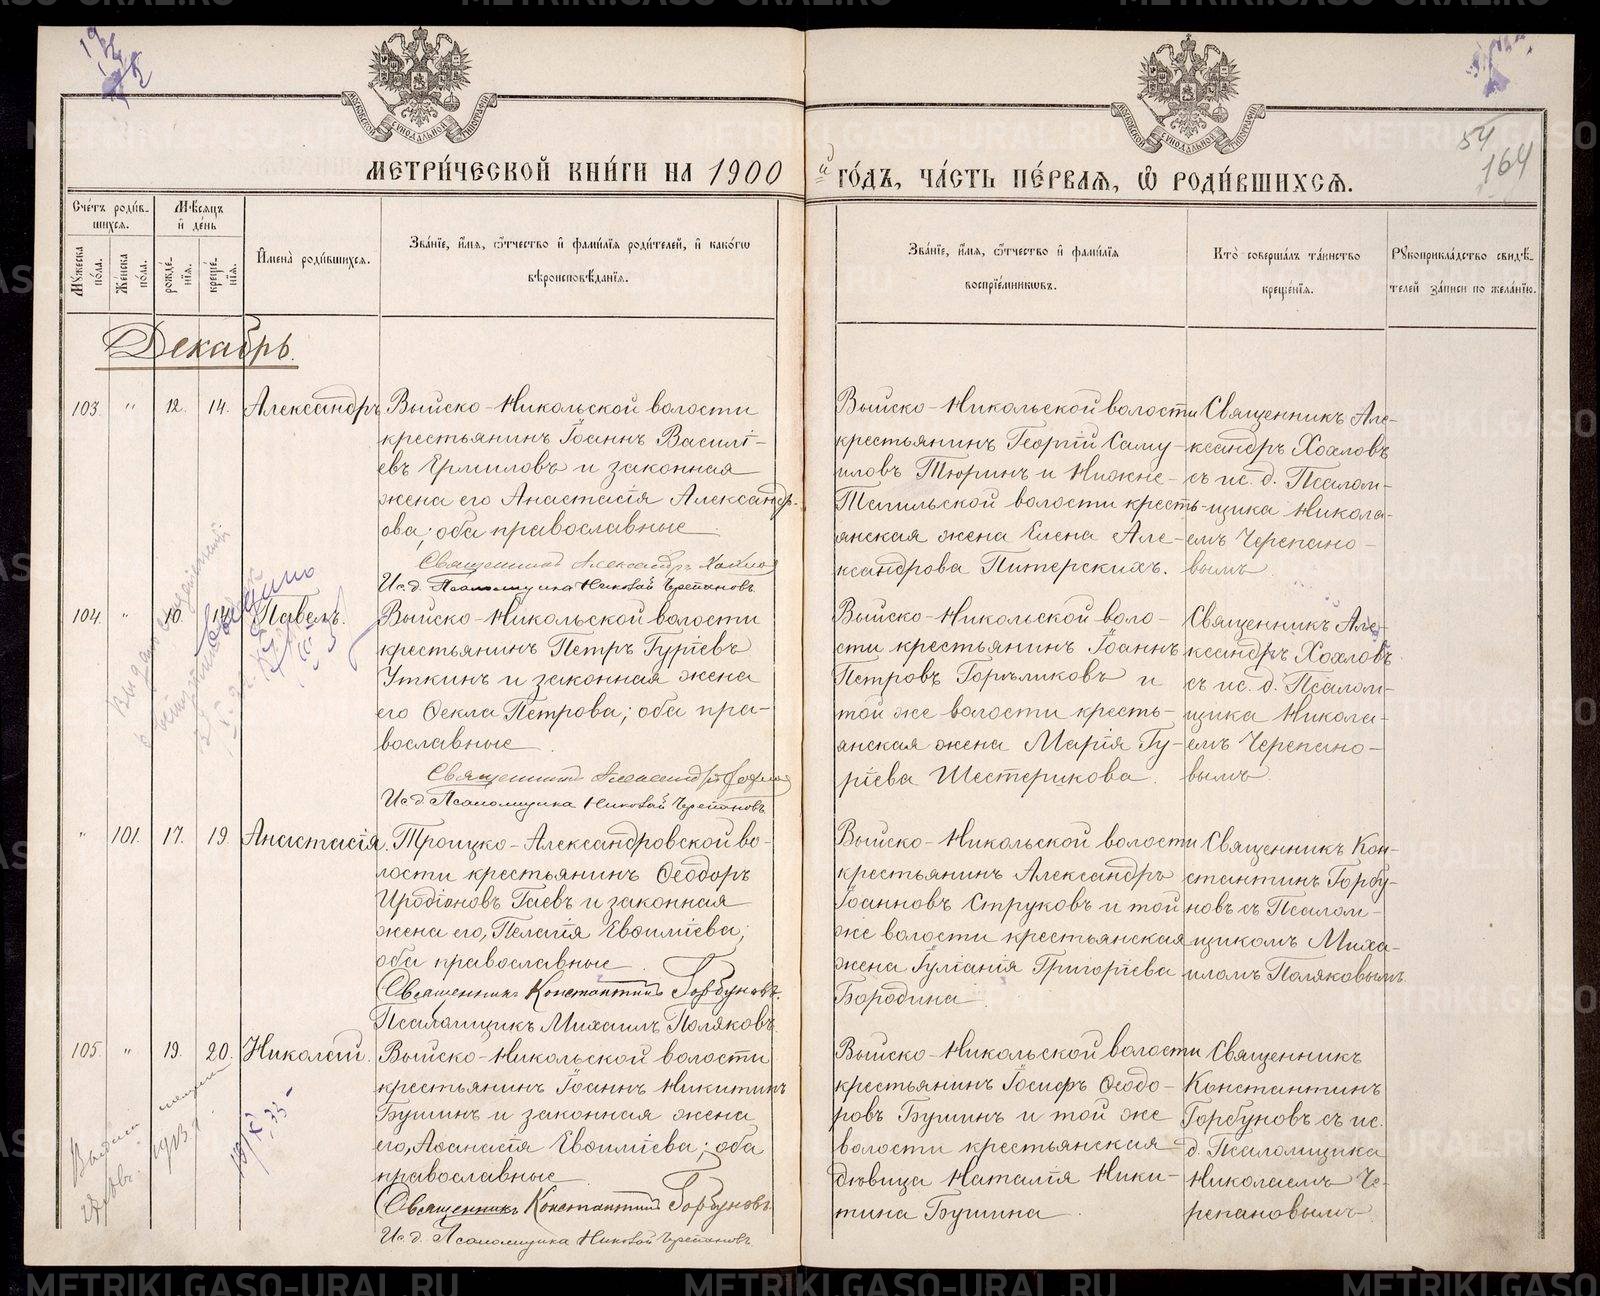 МЕТРИ́ЧЕСКОЙ КНИ́ГИ НА 1900 й ГО́ДЪ, ЧА́СТЬ ПЕ́РВАЯ, Ѡ РОДИ́ВШИХСЯ.
54
164
Сче́тъ роди́в-
шихся.
Мѣ́сяцъ
и҆ де́нь
Мꙋ́жеска по́ла.
Же́нска по́ла.
рожде́-
нїя.
креще́-
нїя.
И҆мена̀ роди́вшихся.
Зва́нїе, и҆́мя, ѻ҆́тчество и҆ фами́лїя роди́телей, и҆ како́гѡ
вѣроисповѣ́данїя.
Зва́нїе, и҆́мя, ѻ҆́тчество и҆ фами́лїя
воспрїе́мникѡвъ.
Кто̀ соверша́лъ та́инство
креще́нїя.
Рꙋкоприкла́дство свидѣ́-
телей за́писи по жела́нїю.
Декабрь.
103. " 12. 14. Александръ
Выйско-Никольской волости
крестьянинъ Іоаннъ Василі-
евъ Ермиловъ и законная
жена его Анастасія Александр-
ова; оба православные
Священникъ Александръ Хохловъ
Ис. д. Псаломщика Николай Черепановъ
Выйско-Никольской волости
крестьянинъ Георгій Саму-
иловъ Тюринъ и Нижне-
Тагильской волости кресть-
янская жена Елена Але-
ксандрова Питерскихъ.
Священникъ Але-
ксандръ Хохловъ
съ ис. д. Псалом-
щика Никола-
емъ Черепано-
вымъ
104. " 10. Павелъ.
Выйско-Никольской волости
крестьянинъ Петръ Гуріевъ
Уткинъ и законная жена
его Ѳекла Петрова; оба пра-
вославные
Священникъ Александръ Хохловъ
Ис. д. Псаломщика Николай Черепановъ
Выйско-Никольской воло-
сти крестьянинъ Іоаннъ
Петровъ Горъликовъ и
той же волости кресть-
янская жена Марія Гу-
ріева Шестерикова.
Священникъ Але-
ксандръ Хохловъ
съ ис. д. Псалом-
щика Никола-
емъ Черепано-
вымъ
" 101. 17. 19. Анастасія.
Троицко-Александровской во-
лости крестьянинъ Ѳеодоръ
Иродіоновъ Гаевъ и законная
жена его, Пелагія Евѳиміева;
оба православные
Священникъ Константинъ Горбуновъ.
Псаломщикъ Михаилъ Поляковъ
Выйско-Никольской волости
крестьянинъ Александръ
Іоанновъ Струковъ и той
же волости крестьянская
жена Іуліанія Григоріева
Бородина
Священникъ Кон-
стантинъ Горбу-
новъ съ Псалом-
щикомъ Миха-
иломъ Поляковымъ
105. " 19. 20. Николай.
Выйско-Никольской волости
крестьянинъ Іоаннъ Никитинъ
Бушинъ и законная жена
его, Аѳанасія Евѳиміева; оба
православные
Священникъ Константинъ Горбуновъ
Ис. д. Псаломщика Николай Черепановъ
Выйско-Никольской волости
крестьянинъ Іосифъ Ѳеодо-
ровъ Бушинъ и той же
волости крестьянская
дѣвица Наталія Ники-
тина Бушина.
Священникъ
Константинъ
Горбуновъ съ ис.
д. Псаломщика
Николаемъ Че-
репановымъ
METRIKI.GASO-URAL.RU